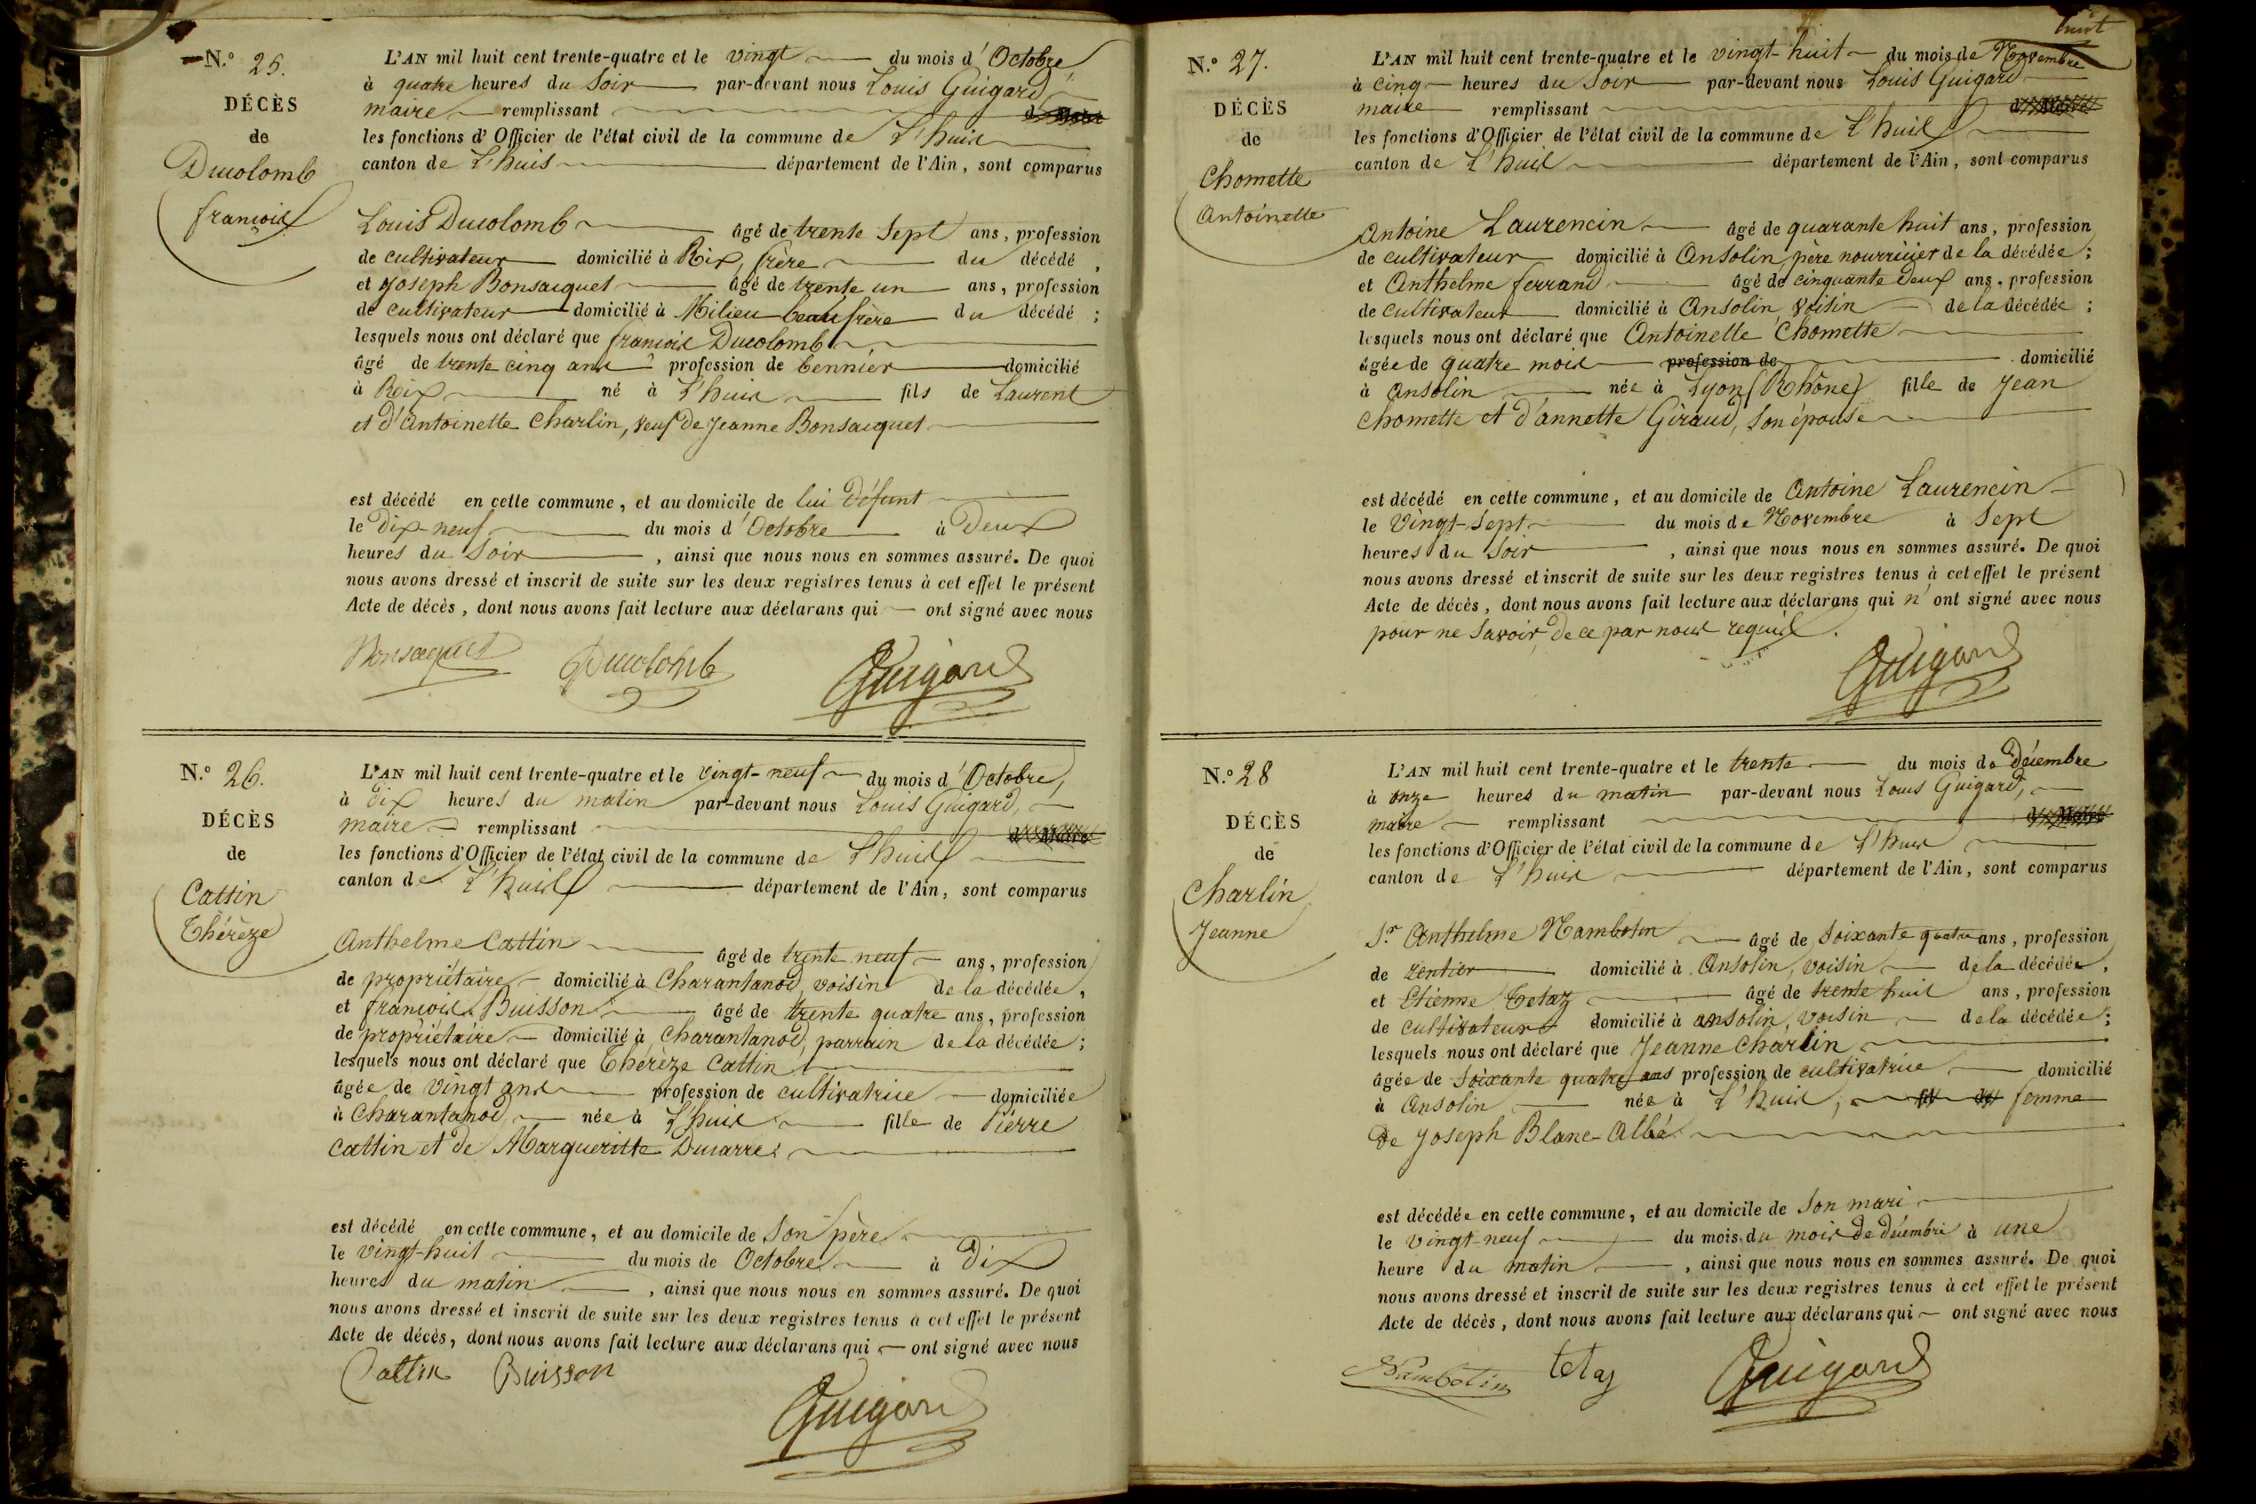 N.º 25.
DÉCÈS
de
Ducolomb
françois
L'AN mil huit cent trente-quatre et le vingt du mois d'Octobre
à quatre heures du Soir par-devant nous Louis Guigard,
maire remplissant
les fonctions d'Officier de l'état civil de la commune de L'huis
canton de L'huis département de l'Ain, sont comparus
Louis Ducolomb âgé de trente Sept ans, profession
de cultivateur domicilié à Rix, frère du décédé,
et Joseph Bonsacquet âgé de trente un ans, profession
de cultivateur domicilié à Milieu beau frère du décédé;
lesquels nous ont déclaré que françois Ducolomb
âgé de trente cinq ans profession de bennier domicilié
à Rix né à L'huis fils de Laurent
et d'Antoinette Charlin, veuf de Jeanne Bonsacquet
est décédé en cette commune, et au domicile de lui défunt
le dix-neuf du mois d'Octobre à Deux
heures du Soir, ainsi que nous nous en sommes assuré. De quoi
nous avons dressé et inscrit de suite sur les deux registres tenus à cet effet le présent
Acte de décès, dont nous avons fait lecture aux déclarans qui ont signé avec nous
Bonsacquet Ducolomb Guigard
N.º 26.
DÉCÈS
de
Cattin
Thérèze
L'AN mil huit cent trente-quatre et le vingt-neuf du mois d'Octobre,
à dix heures du matin par-devant nous Louis Guigard,
maire remplissant d Maire
les fonctions d'Officier de l'état civil de la commune de L'huis
canton de L'huis département de l'Ain, sont comparus
Anthelme Cattin âgé de trente neuf ans, profession
de propriétaire domicilié à Charantanod, voisin de la décédée,
et françois Buisson âgé de trente quatre ans, profession
de propriétaire domicilié à Charantanod, parrain de la décédée;
lesquels nous ont déclaré que Thérèze Cattin
âgée de vingt ans profession de cultivatrice domiciliée
à Charantanod, née à L'huis fille de Pierre
Cattin et de Margueritte Ducarre;
est décédé en cette commune, et au domicile de Son père
le vingt-huit du mois de Octobre à Dix
heures du matin, ainsi que nous nous en sommes assuré. De quoi
nous avons dressé et inscrit de suite sur les deux registres tenus à cet effet le présent
Acte de décès, dont nous avons fait lecture aux déclarans qui ont signé avec nous
Cattin Buisson Guigard
huit
N.º 27.
DÉCÈS
de
Chomette
Antoinette
L'AN mil huit cent trente-quatre et le vingt-huit du mois de Novembre
à cinq heures du Soir par-devant nous Louis Guigard
maire remplissant d Maire
les fonctions d'Officier de l'état civil de la commune de L'huis
canton de L'huis département de l'Ain, sont comparus
Antoine Laurencin âgé de quarante huit ans, profession
de cultivateur domicilié à Ansolin père nourricier de la décédée;
et Anthelme ferrand âgé de cinquante deux ans, profession
de cultivateur domicilié à Ansolin, voisin de la décédée;
lesquels nous ont déclaré que Antoinette Chomette
âgée de quatre mois profession de domicilié
à Ansolin née à Lyon (Rhône) fille de Jean
Chomette et d'annette Giraud, Son épouse
est décédé en cette commune, et au domicile de Antoine Laurencin
le Vingt-Sept du mois de Novembre à Sept
heures du Soir, ainsi que nous nous en sommes assuré. De quoi
nous avons dressé et inscrit de suite sur les deux registres tenus à cet effet le présent
Acte de décès, dont nous avons fait lecture aux déclarans qui n'ont signé avec nous
pour ne Savoir, de ce par nous requis.
Guigard
N.º 28
DÉCÈS
de
Charlin
Jeanne
L'AN mil huit cent trente-quatre et le trente du mois de Décembre
à onze heures du matin par-devant nous Louis Guigard,
maire remplissant d Maire
les fonctions d'Officier de l'état civil de la commune de L'huis
canton de L'huis département de l'Ain, sont comparus
Sr Anthelme Nambotin âgé de Soixante quatre ans, profession
de rentier domicilié à Ansolin, voisin de la décédée,
et Etienne Tetaz âgé de trente huit ans, profession
de cultivateur domicilié à ansolin, voisin de la décédée;
lesquels nous ont déclaré que Jeanne Charlin
âgée de Soixante quatre ans profession de cultivatrice domicilié
à Ansolin née à L'huis, femme
de Joseph Blanc-Albé
est décédée en cette commune, et au domicile de Son mari
le vingt-neuf du mois du mois de décembre à une
heure du matin, ainsi que nous nous en sommes assuré. De quoi
nous avons dressé et inscrit de suite sur les deux registres tenus à cet effet le présent
Acte de décès, dont nous avons fait lecture aux déclarans qui ont signé avec nous
Nambotin tetaz Guigard